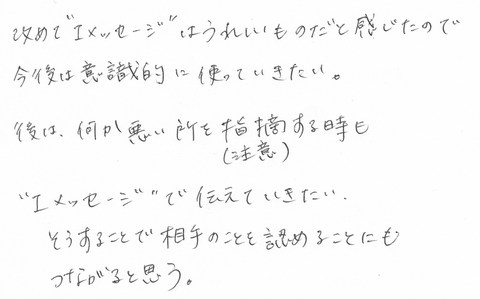 改めて"Iメッセージ"はうれしいものだと感じたので
今後は意識的に使っていきたい。
後は、何か悪い所を指摘する時も
(注意)
"Iメッセージ"で伝えていきたい.
そうすることで相手のことを認めることにも
つながると思う。